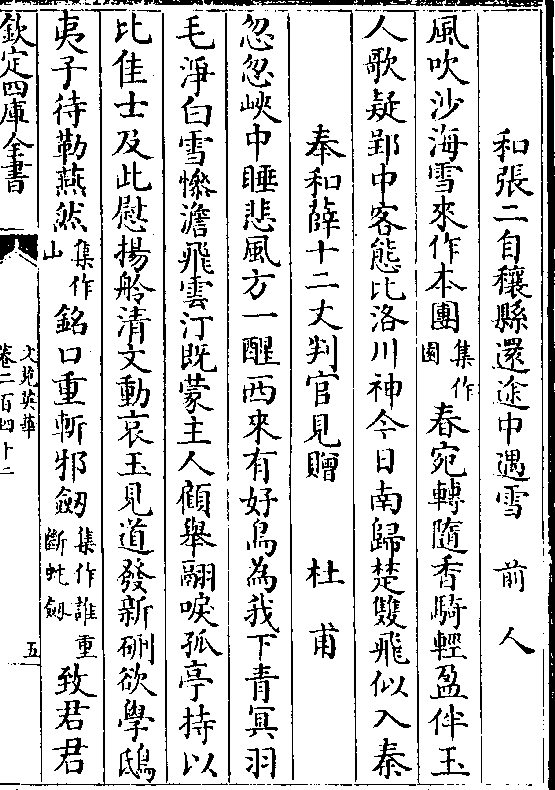 和張二自穰縣還途中遇雪 前人
風吹沙海雪來作本團集作園春宛轉隨香騎輕盈伴玉
人歌疑郢中客態比洛川神今日南歸楚雙飛似入秦
奉和薛十二丈判官見贈 杜甫
忽忽峽中睡悲風方一醒西來有好鳥為我下青冥羽
毛淨白雪慘澹飛雲汀既蒙主人顧舉翮唳孤亭持以
比佳士及此慰揚舲清文動哀玉見道發新硎欲學鴟
夷子待勒燕然集作山銘口重斬邪劔集作誰重斷虵劔致君君
欽定四庫全書
文苑英華
卷二百四十二
五